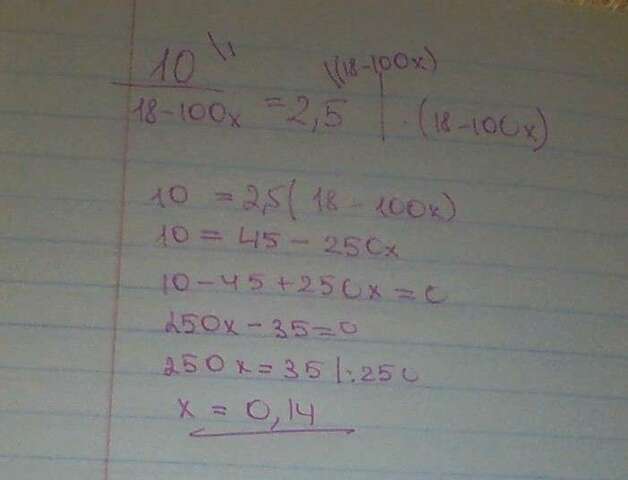 10 \1 \(18-100x)
18-100x = 2,5 | ·(18-100x)
10 = 2,5(18-100x)
10 = 45 - 250x
10-45+250x=0
250x-35=0
250x=35 |:250
x = 0,14